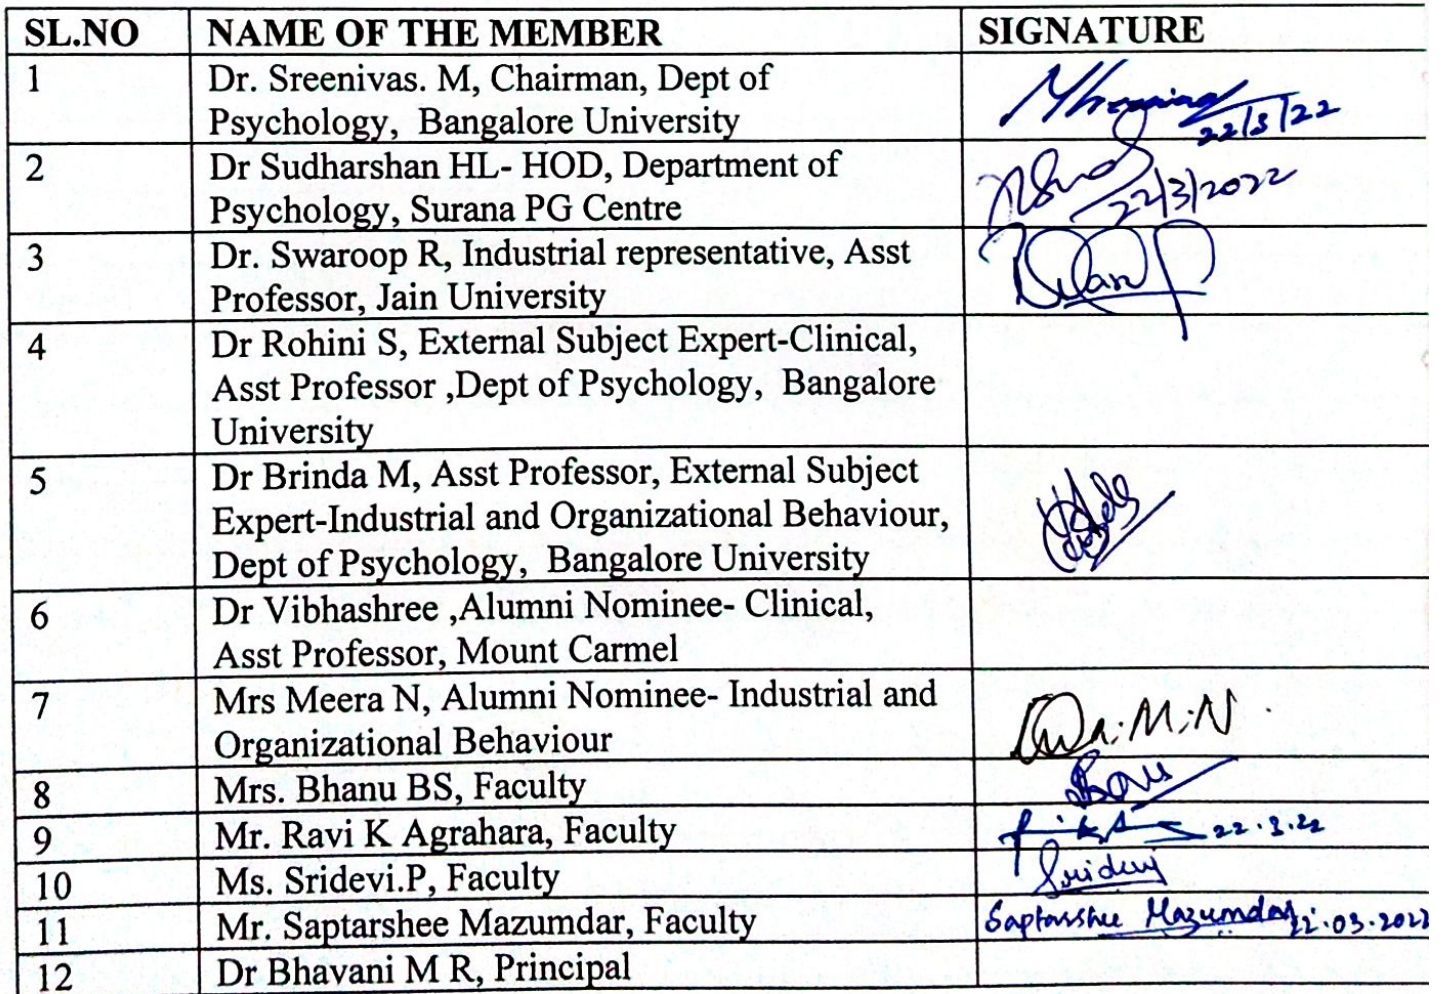 SL.NO NAME OF THE MEMBER SIGNATURE
1 Dr. Sreenivas. M, Chairman, Dept of
Psychology, Bangalore University
22/3/22
2 Dr Sudharshan HL- HOD, Department of
Psychology, Surana PG Centre
22/3/2022
3 Dr. Swaroop R, Industrial representative, Asst
Professor, Jain University
4 Dr Rohini S, External Subject Expert-Clinical,
Asst Professor ,Dept of Psychology, Bangalore
University
5 Dr Brinda M, Asst Professor, External Subject
Expert-Industrial and Organizational Behaviour,
Dept of Psychology, Bangalore University
6 Dr Vibhashree ,Alumni Nominee- Clinical,
Asst Professor, Mount Carmel
7 Mrs Meera N, Alumni Nominee- Industrial and
Organizational Behaviour
M.N.
8 Mrs. Bhanu BS, Faculty
9 Mr. Ravi K Agrahara, Faculty 22.3.22
10 Ms. Sridevi.P, Faculty Sridevi
11 Mr. Saptarshee Mazumdar, Faculty Saptarshee Mazumdar 22.03.2022
12 Dr Bhavani M R, Principal